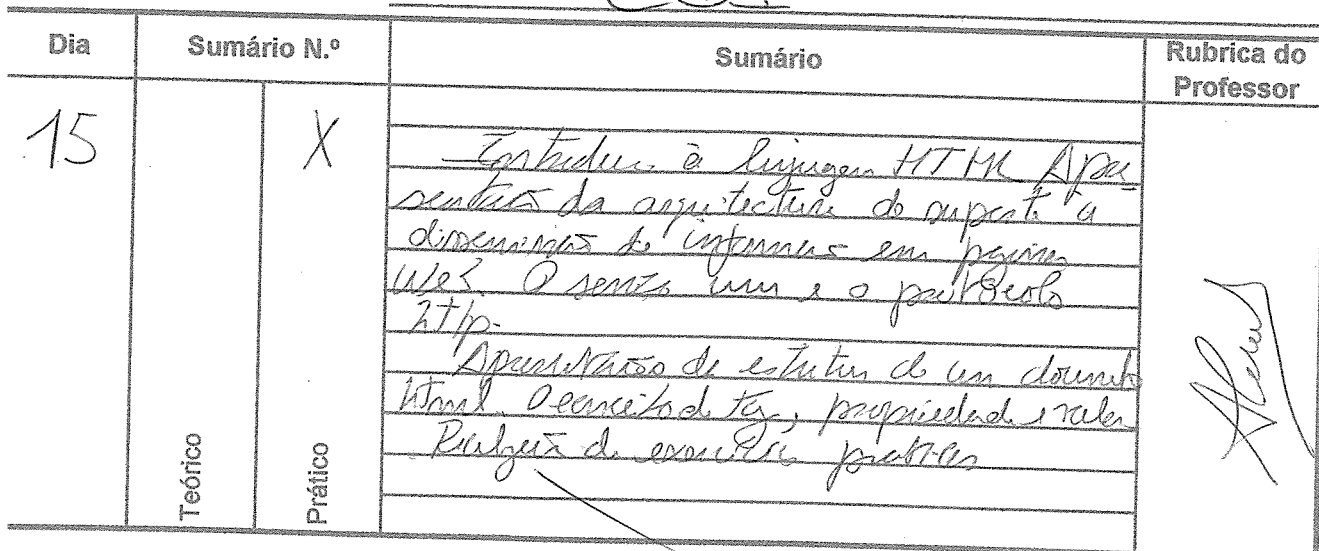 Dia
Sumário N.º
Sumário
Rubrica do
Professor
15
X
Introdução à linguagem HTML Apre_
sentação da arquitectura do suporte à
disseminação de informação em páginas
web. O serviço www e o protocolo
http.
Apresentação da estrutura de um documento
html. O conceito de tag, propriedade e valor
Realização de exercícios práticos
Teórico
Prático